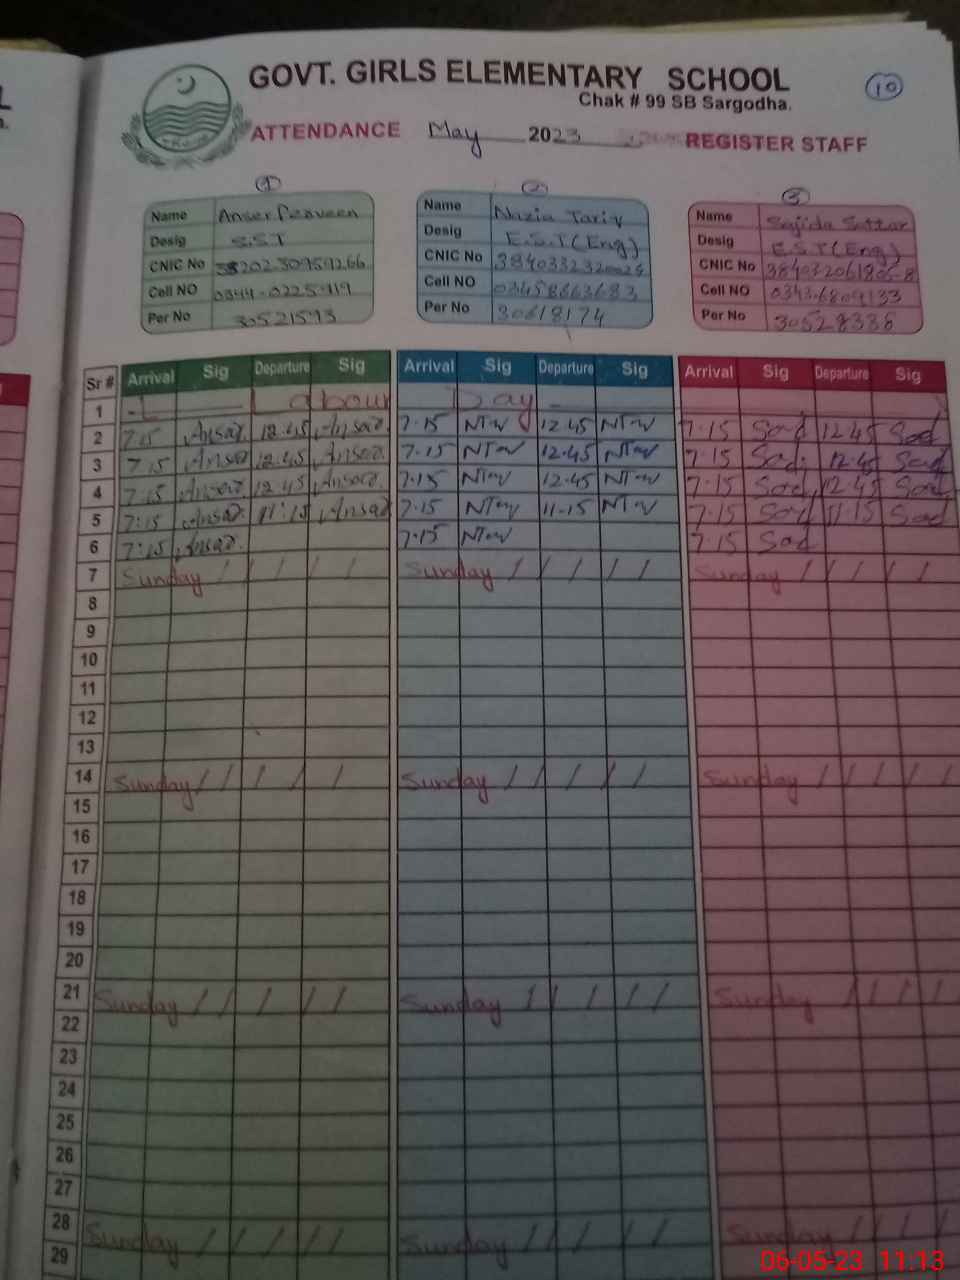 GOVT. GIRLS ELEMENTARY SCHOOL
10
Chak # 99 SB Sargodha.
ATTENDANCE May 2023 REGISTER STAFF
1 2 3
Name Anser Perveen
Desig S.S.T
CNIC No
Cell NO
Per No 30521593
Name Nazia Tariq
Desig E.S.T (Eng)
CNIC No
Cell NO 03458663683
Per No 30618174
Name Sajida Sattar
Desig E.S.T (Eng)
CNIC No
Cell NO 0343-6809133
Per No
Sr # Arrival Sig Departure Sig Arrival Sig Departure Sig Arrival Sig Departure Sig
1 Labour Day
2 7.15 Ansar 12.45 Ansar 7.15 NTav 12.45 NTav 7.15 Sad 12.45 Sad
3 7.15 Ansar 12.45 Ansar 7.15 NTav 12.45 NTav 7.15 Sad 12.45 Sad
4 7.15 Ansar 12.45 Ansar 7.15 NTav 12.45 NTav 7.15 Sad 12.45 Sad
5 7:15 Ansar 11:15 Ansar 7.15 NTav 11.15 NTav 7.15 Sad 11.15 Sad
6 7:15 Ansar 7.15 NTav 7.15 Sad
7 Sunday / / / / / Sunday / / / / / Sunday / / / / /
8
9
10
11
12
13
14 Sunday / / / / / Sunday / / / / / Sunday / / / / /
15
16
17
18
19
20
21 Sunday / / / / / Sunday / / / / / Sunday / / / / /
22
23
24
25
26
27
28 Sunday / / / / / Sunday / / / / / Sunday / / / / /
29
06-05-23 11:13